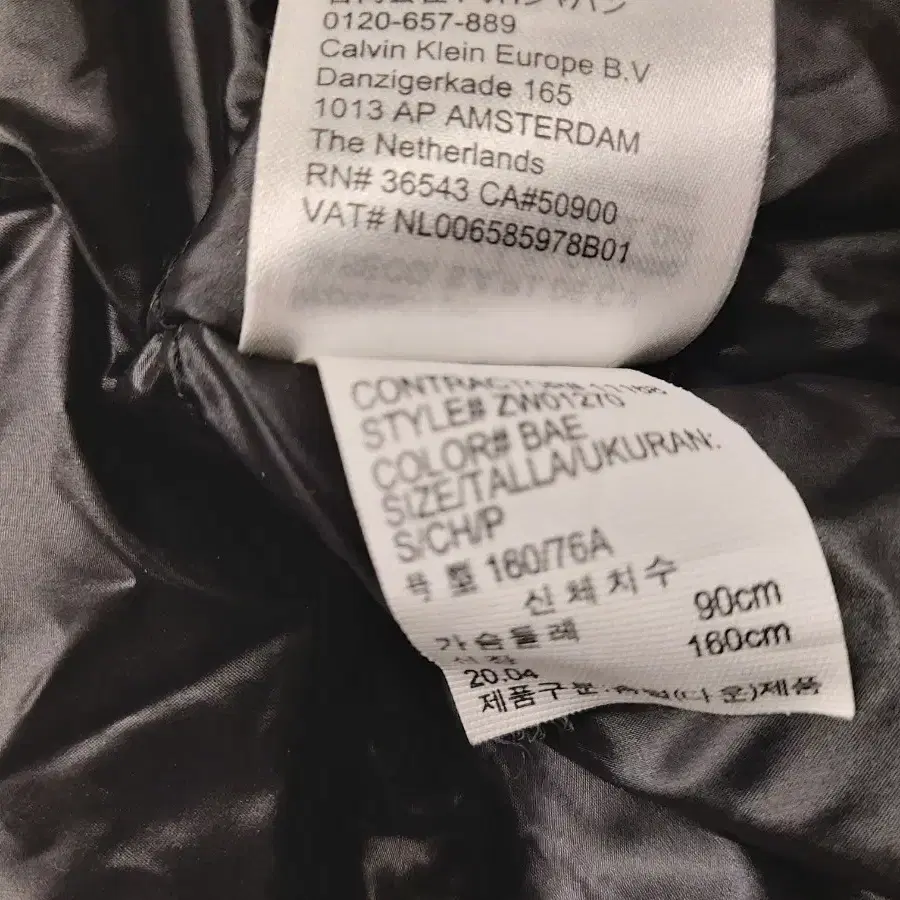 0120-657-889
Calvin Klein Europe B.V
Danzigerkade 165
1013 AP AMSTERDAM
The Netherlands
RN# 36543 CA#50900
VAT# NL006585978B01
STYLE# ZW01270
COLOR# BAE
SIZE/TALLA/UKURAN:
S/CH/P
160/76A
신체치수
가슴둘레 90cm
신장 160cm
20.04
제품구분: (다운)제품